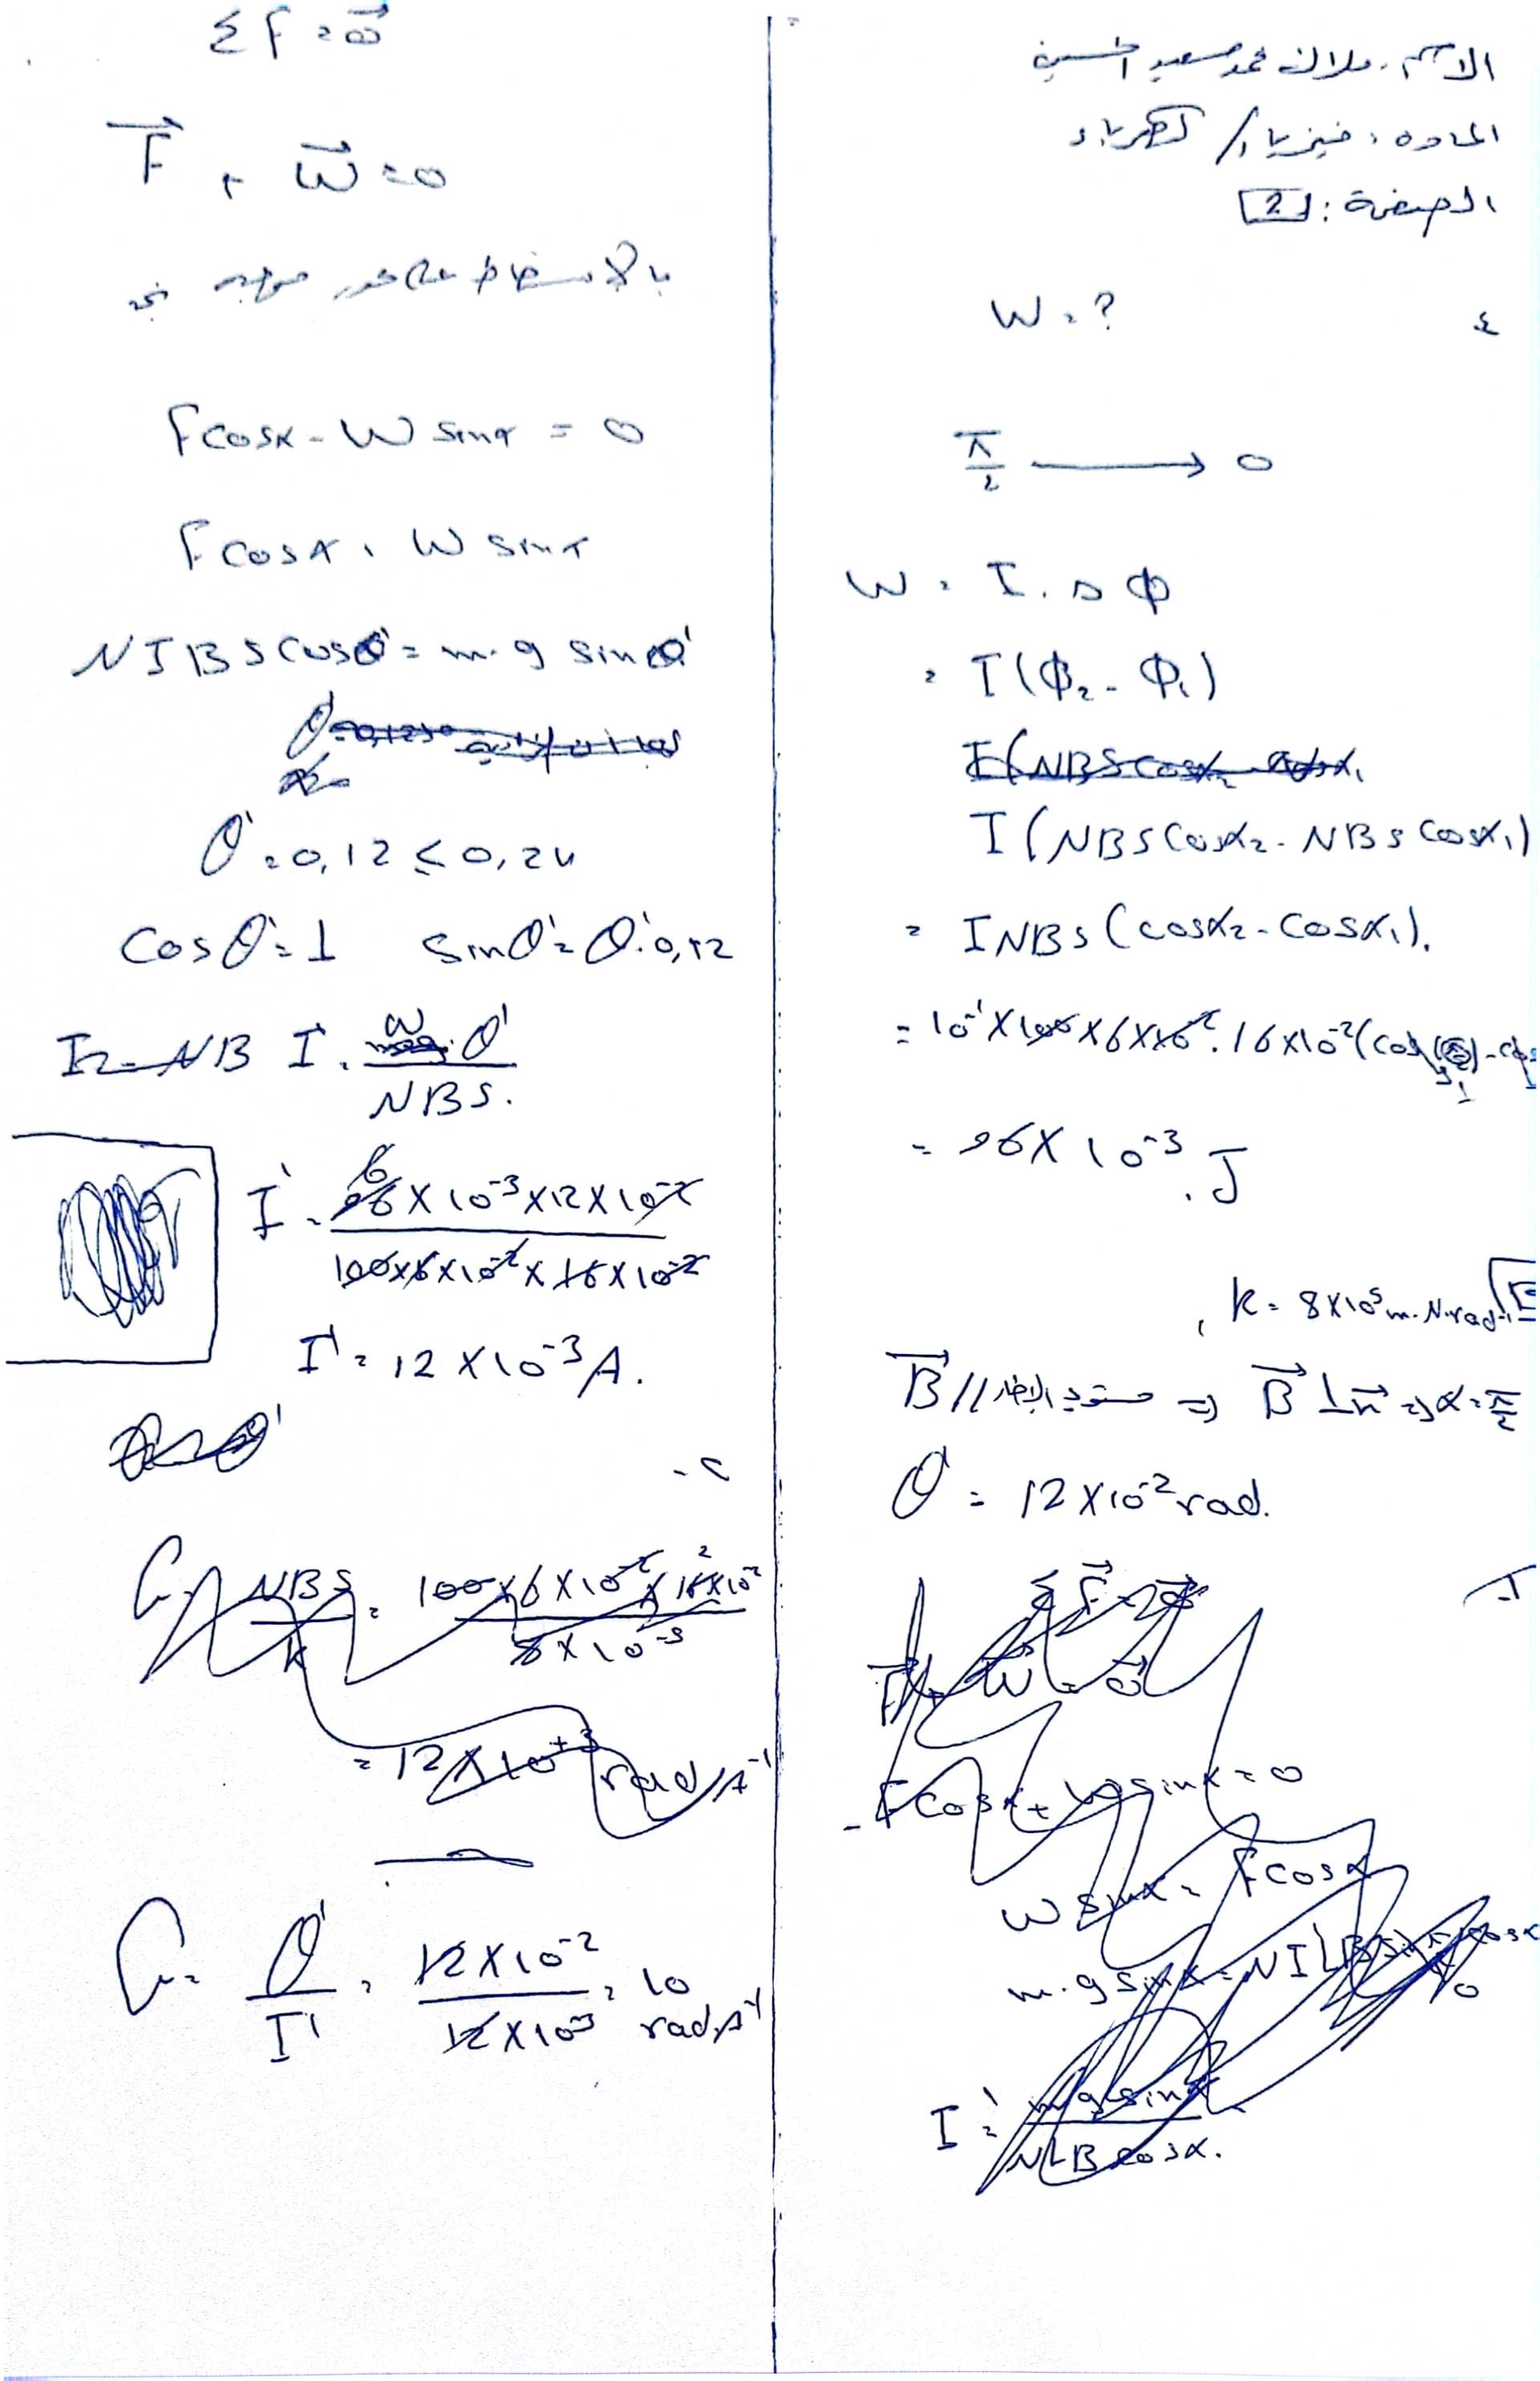 الاسم: ملاك محمد سعيد الحسين
المادة: فيزياء / كهرباء
الصفحة: 2
٤
W = ?
π/2 → 0
W = I . Δ Φ
= I (Φ₂ - Φ₁)
I (NBS cosα₂ - NBS cosα₁)
= INBS (cosα₂ - cosα₁).
= 10⁻¹ × 100 × 6 × 10⁻² . 16 × 10⁻² (cos
= 96 × 10⁻³ . J
, k = 8 × 10⁻⁵ m.N.rad⁻¹
B⃗ // مستوي الإطار ⇒ B⃗ ⊥ n⃗ ⇒ α = π/2
θ' = 12 × 10⁻² rad.
F⃗ + W⃗ = 0⃗
-F cosα + W sinα = 0
W sinα = F cosα
I' = m g sinα / NLB cosα.
Σ F = 0⃗
F⃗ + W⃗ = 0
بالاسقاط على محور موجه
F cosα - W sinα = 0
F cosα = W sinα
NIBS cosθ' = m.g sinθ'
θ' = 0,12 ≤ 0,24
cosθ' = 1 sinθ' = θ' = 0,12
I = NB I' = W . θ' / NBS.
I' = 96 × 10⁻³ × 12 × 10⁻² / 100 × 6 × 10⁻² × 16 × 10⁻²
I' = 12 × 10⁻³ A.
G = NBS / k = 100 × 6 × 10⁻² × 16 × 10⁻² / 8 × 10⁻⁵
= 12 × 10⁺³ rad A⁻¹
G = θ' / I' = 12 × 10⁻² / 12 × 10⁻³ = 10 rad A⁻¹